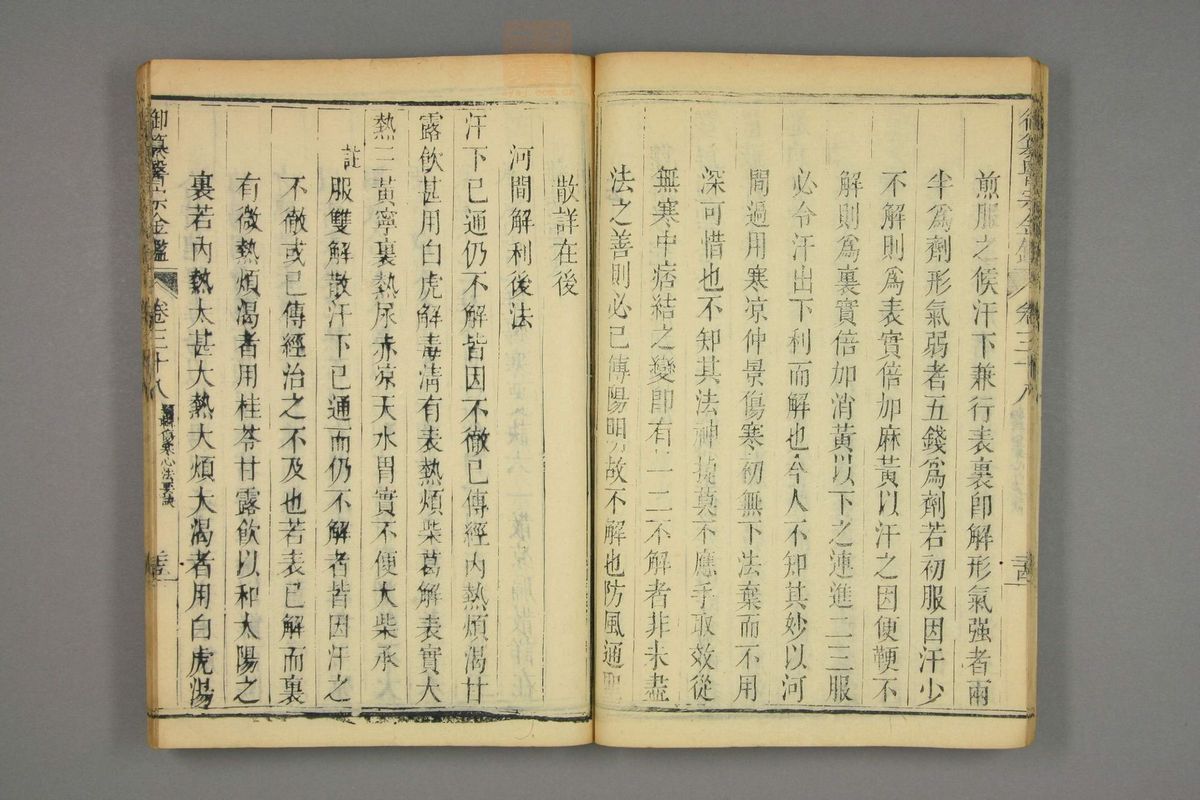 煎服之候汗下兼行表裏卽解形氣强者兩
半爲劑形氣弱者五錢爲劑若初服因汗少
不解則爲表實倍加麻黃以汗之因便鞕不
解則爲裏實倍加硝黃以下之連進二三服
必令汗出下利而解也今人不知其妙以河
間過用寒凉仲景傷寒初無下法棄而不用
深可惜也不知其法神捷莫不應手取效從
無寒中痞結之變卽有一二不解者非未盡
法之善則必已傳陽明故不解也防風通聖
散詳在後
河間解利後法
汗下已通仍不解皆因不徹已傳經內熱煩渴甘
露飲甚用白虎解毒淸有表熱煩柴葛解表實大
熱三黃寧裏熱尿赤凉天水胃實不便大柴承
註
服雙解散汗下已通而仍不解者皆因汗之
不徹或已傳經治之不及也若表已解而裏
有微熱煩渴者用桂苓甘露飲以和太陽之
裏若內熱太甚大熱大煩大渴者用白虎湯
御纂醫宗金鑑
卷三十八
傷寒心法要訣